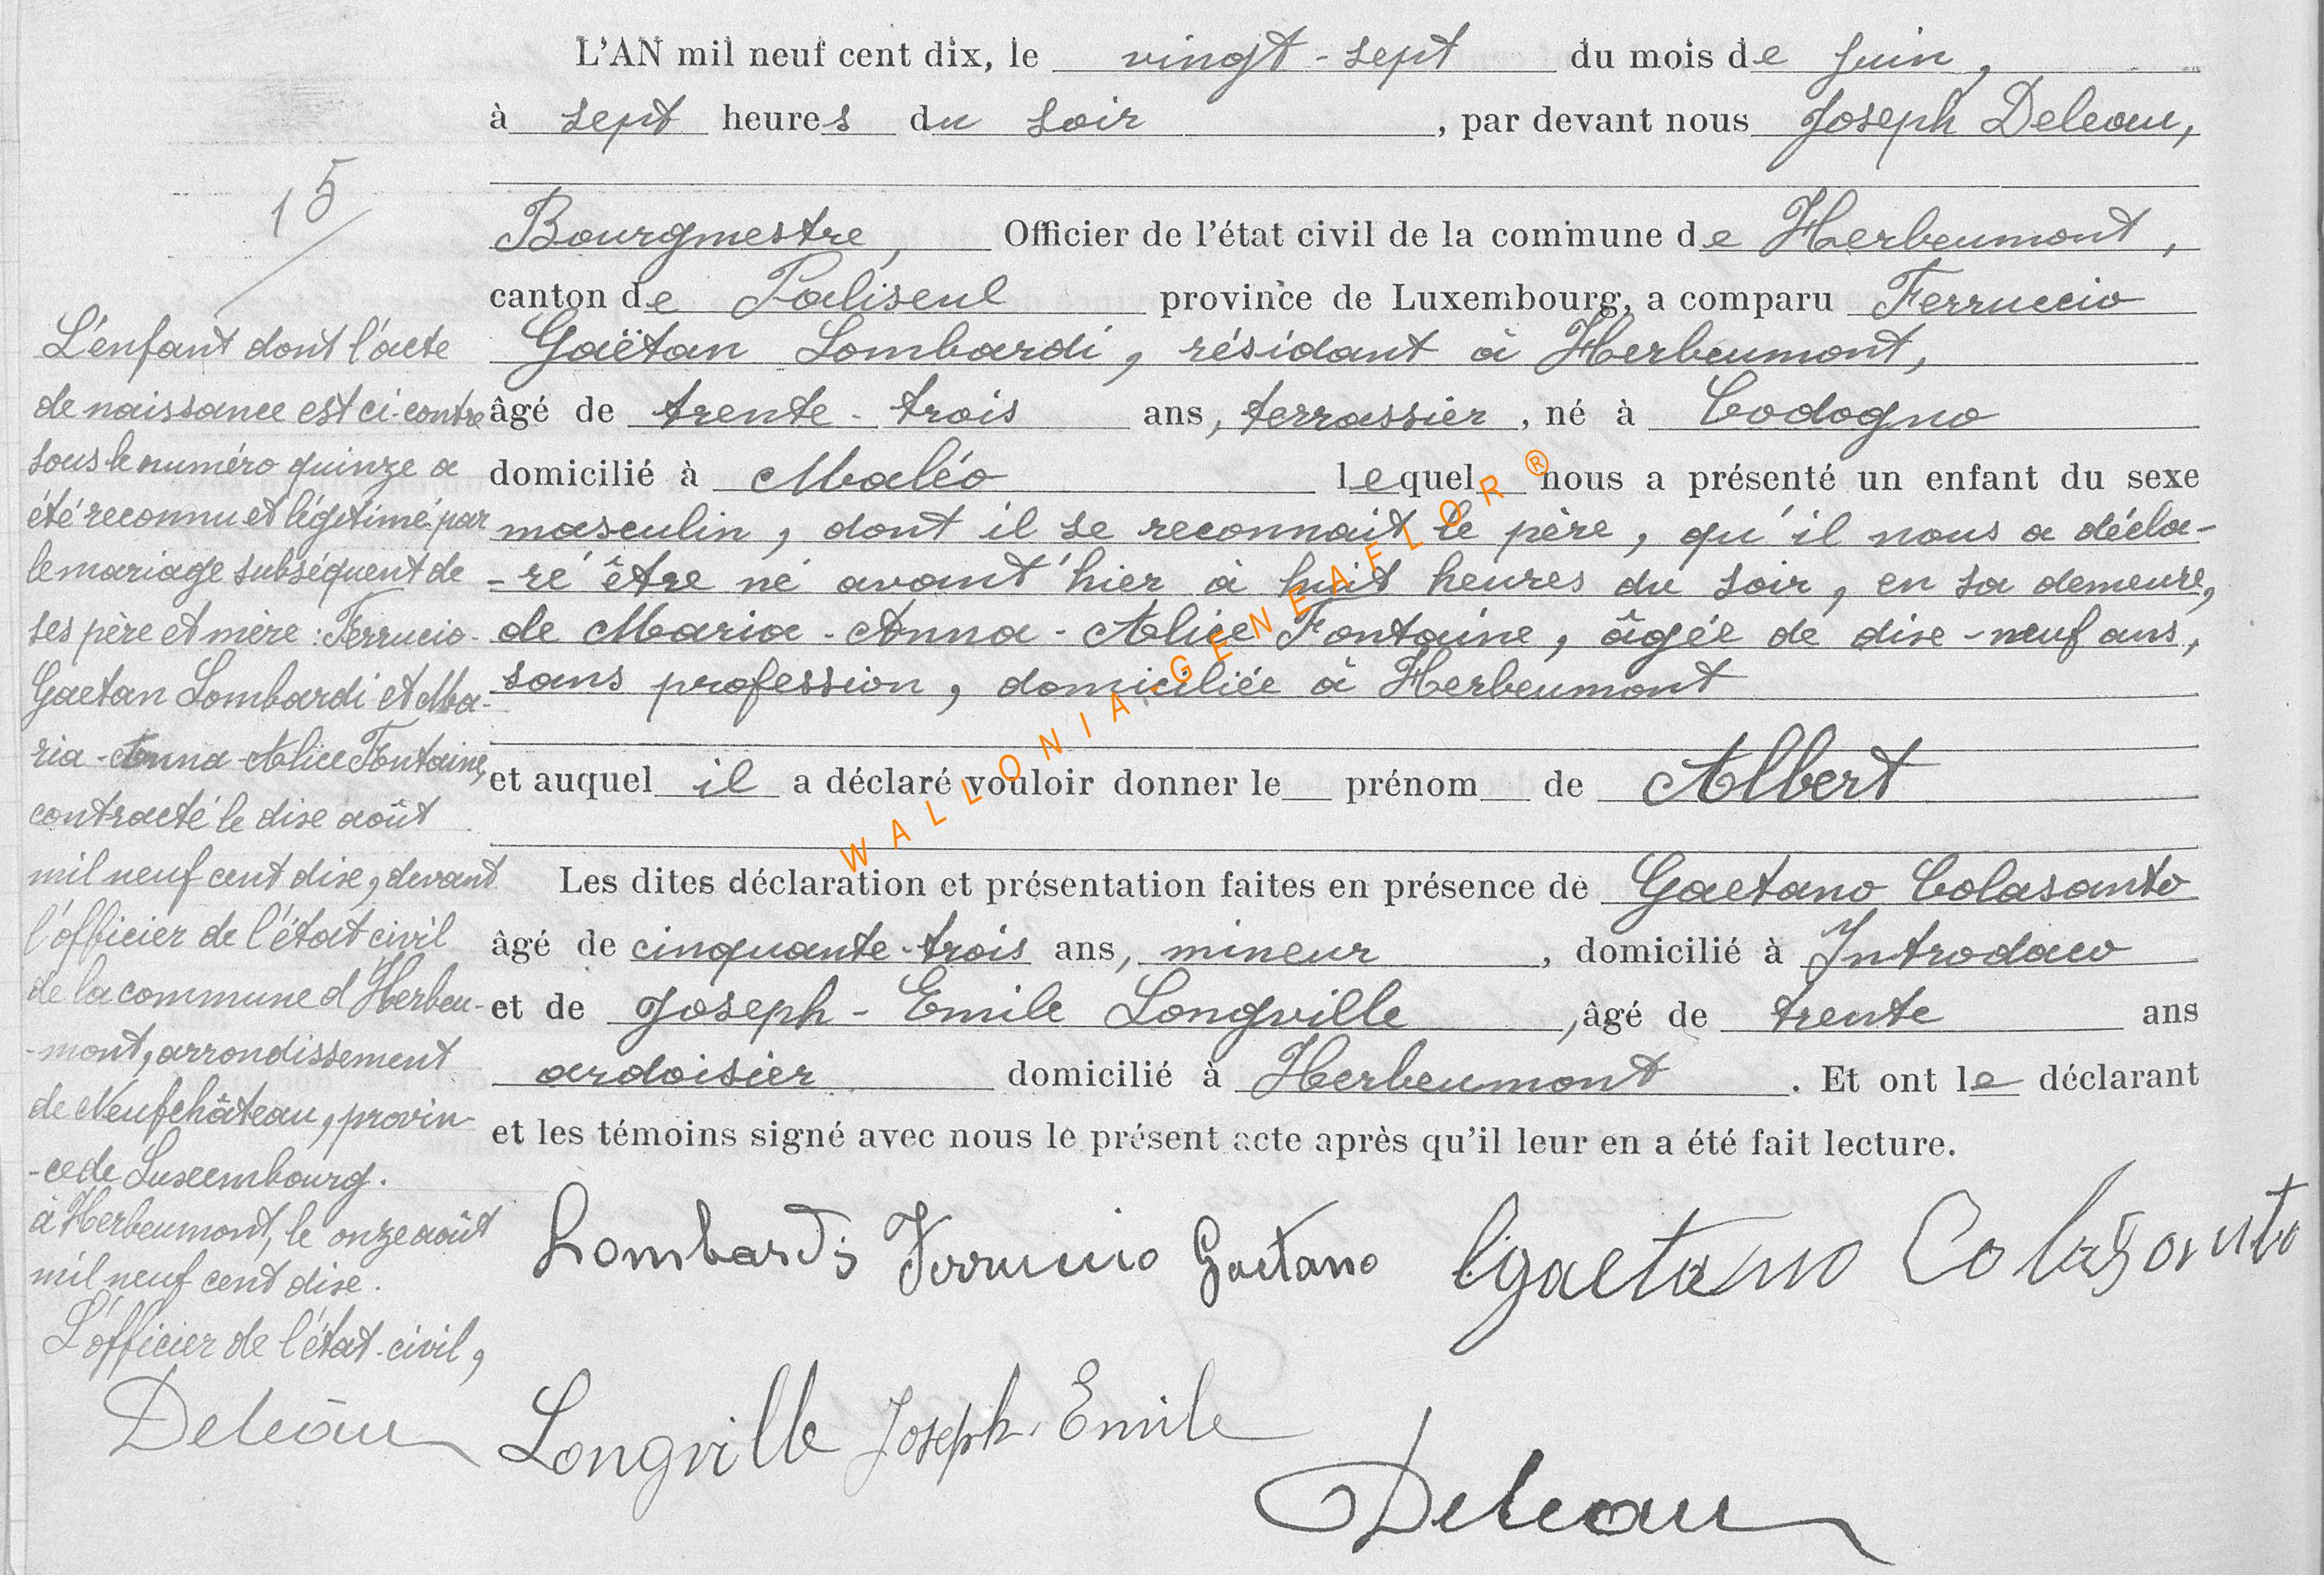 L'AN mil neuf cent dix, le vingt-sept du mois de juin,
à sept heures du soir, par devant nous Joseph Deleau,
Bourgmestre, Officier de l'état civil de la commune de Herbeumont,
canton de Paliseul province de Luxembourg, a comparu Ferruccio
Gaëtan Lombardi, résidant à Herbeumont,
âgé de trente-trois ans, terrassier, né à Codogno
domicilié à Maléo lequel nous a présenté un enfant du sexe
masculin, dont il se reconnait le père, qu'il nous a décla-
-ré être né avant'hier à huit heures du soir, en sa demeure,
de Maria-Anna-Alice Fontaine, âgée de dix-neuf ans,
sans profession, domiciliée à Herbeumont
et auquel il a déclaré vouloir donner le prénom de Albert
Les dites déclaration et présentation faites en présence de Gaetano Colasanto
âgé de cinquante-trois ans, mineur, domicilié à Introdaco
et de Joseph-Emile Longville, âgé de trente ans
ardoisier domicilié à Herbeumont. Et ont le déclarant
et les témoins signé avec nous le présent acte après qu'il leur en a été fait lecture.
Lombardi Ferruccio Gaetano Gaetano Colasanto
Longville Joseph-Emile
Deleau
15
L'enfant dont l'acte
de naissance est ci-contre
sous le numéro quinze a
été reconnu et légitimé par
le mariage subséquent de
ses père et mère : Ferrucio-
Gaetan Lombardi et Ma-
ria-Anna-Alice Fontaine,
contracté le dix août
mil neuf cent dix, devant
l'officier de l'état civil
de la commune d'Herbeu-
-mont, arrondissement
de Neufchâteau, provin-
-ce de Luxembourg.
à Herbeumont, le onze août
mil neuf cent dix.
L'officier de l'état-civil,
Deleau
WALLONIA-GENEAFLOR®